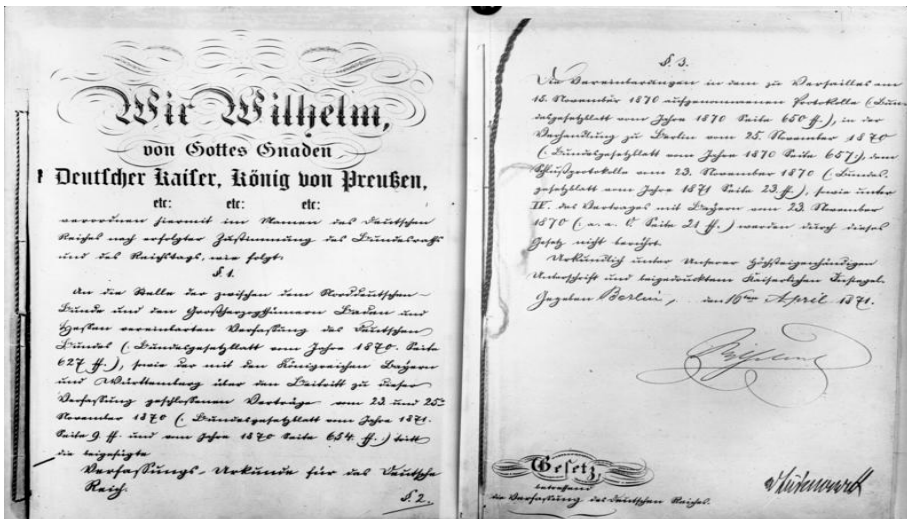 Wir Wilhelm,
von Gottes Gnaden
Deutscher Kaiser, König von Preußen,
etc: etc: etc:
verordnen hiermit im Namen des Deutschen
Reichs nach erfolgter Zustimmung des Bundesraths
und des Reichstags, wie folgt:
§ 1.
An die Stelle der zwischen dem Norddeutschen
Bunde und den Großherzogthümern Baden und
Hessen vereinbarten Verfassung des Deutschen
Bundes (Bundesgesetzblatt vom Jahre 1870. Seite
627 ff.), sowie der mit den Königreichen Bayern
und Württemberg über den Beitritt zu dieser
Verfassung geschlossenen Verträge vom 23. und 25.
November 1870 (Bundesgesetzblatt vom Jahre 1871.
Seite 9. ff. und vom Jahre 1870 Seite 654. ff.) tritt
die beigefügte
Verfassungs-Urkunde für das Deutsche
Reich.
§. 2.
§. 3.
Die Vereinbarungen in dem zu Versailles am
15. November 1870 aufgenommenen Protokolle (Bun-
desgesetzblatt vom Jahre 1870 Seite 650 ff.), in der
Verhandlung zu Berlin vom 25. November 1870
(Bundesgesetzblatt vom Jahre 1870 Seite 657.), dem
Schlußprotokolle vom 23. November 1870 (Bundes-
gesetzblatt vom Jahre 1871 Seite 23. ff.), sowie unter
IV. des Vertrages mit Bayern vom 23. November
1870 (a. a. O. Seite 21 ff.) werden durch dieses
Gesetz nicht berührt.
Urkundlich unter Unserer Höchsteigenhändigen
Unterschrift und beigedrucktem Kaiserlichen Insiegel.
Gegeben Berlin, den 16ten April 1871.
Wilhelm
Gesetz,
betreffend
die Verfassung des Deutschen Reiches.